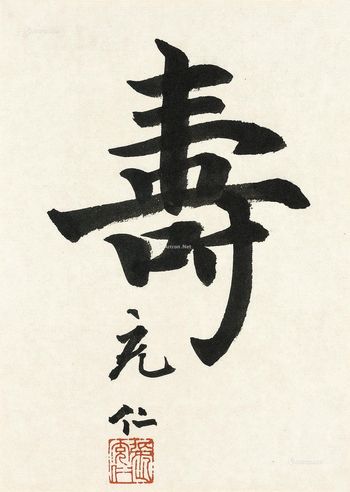 壽
充
仁
Artron.Net